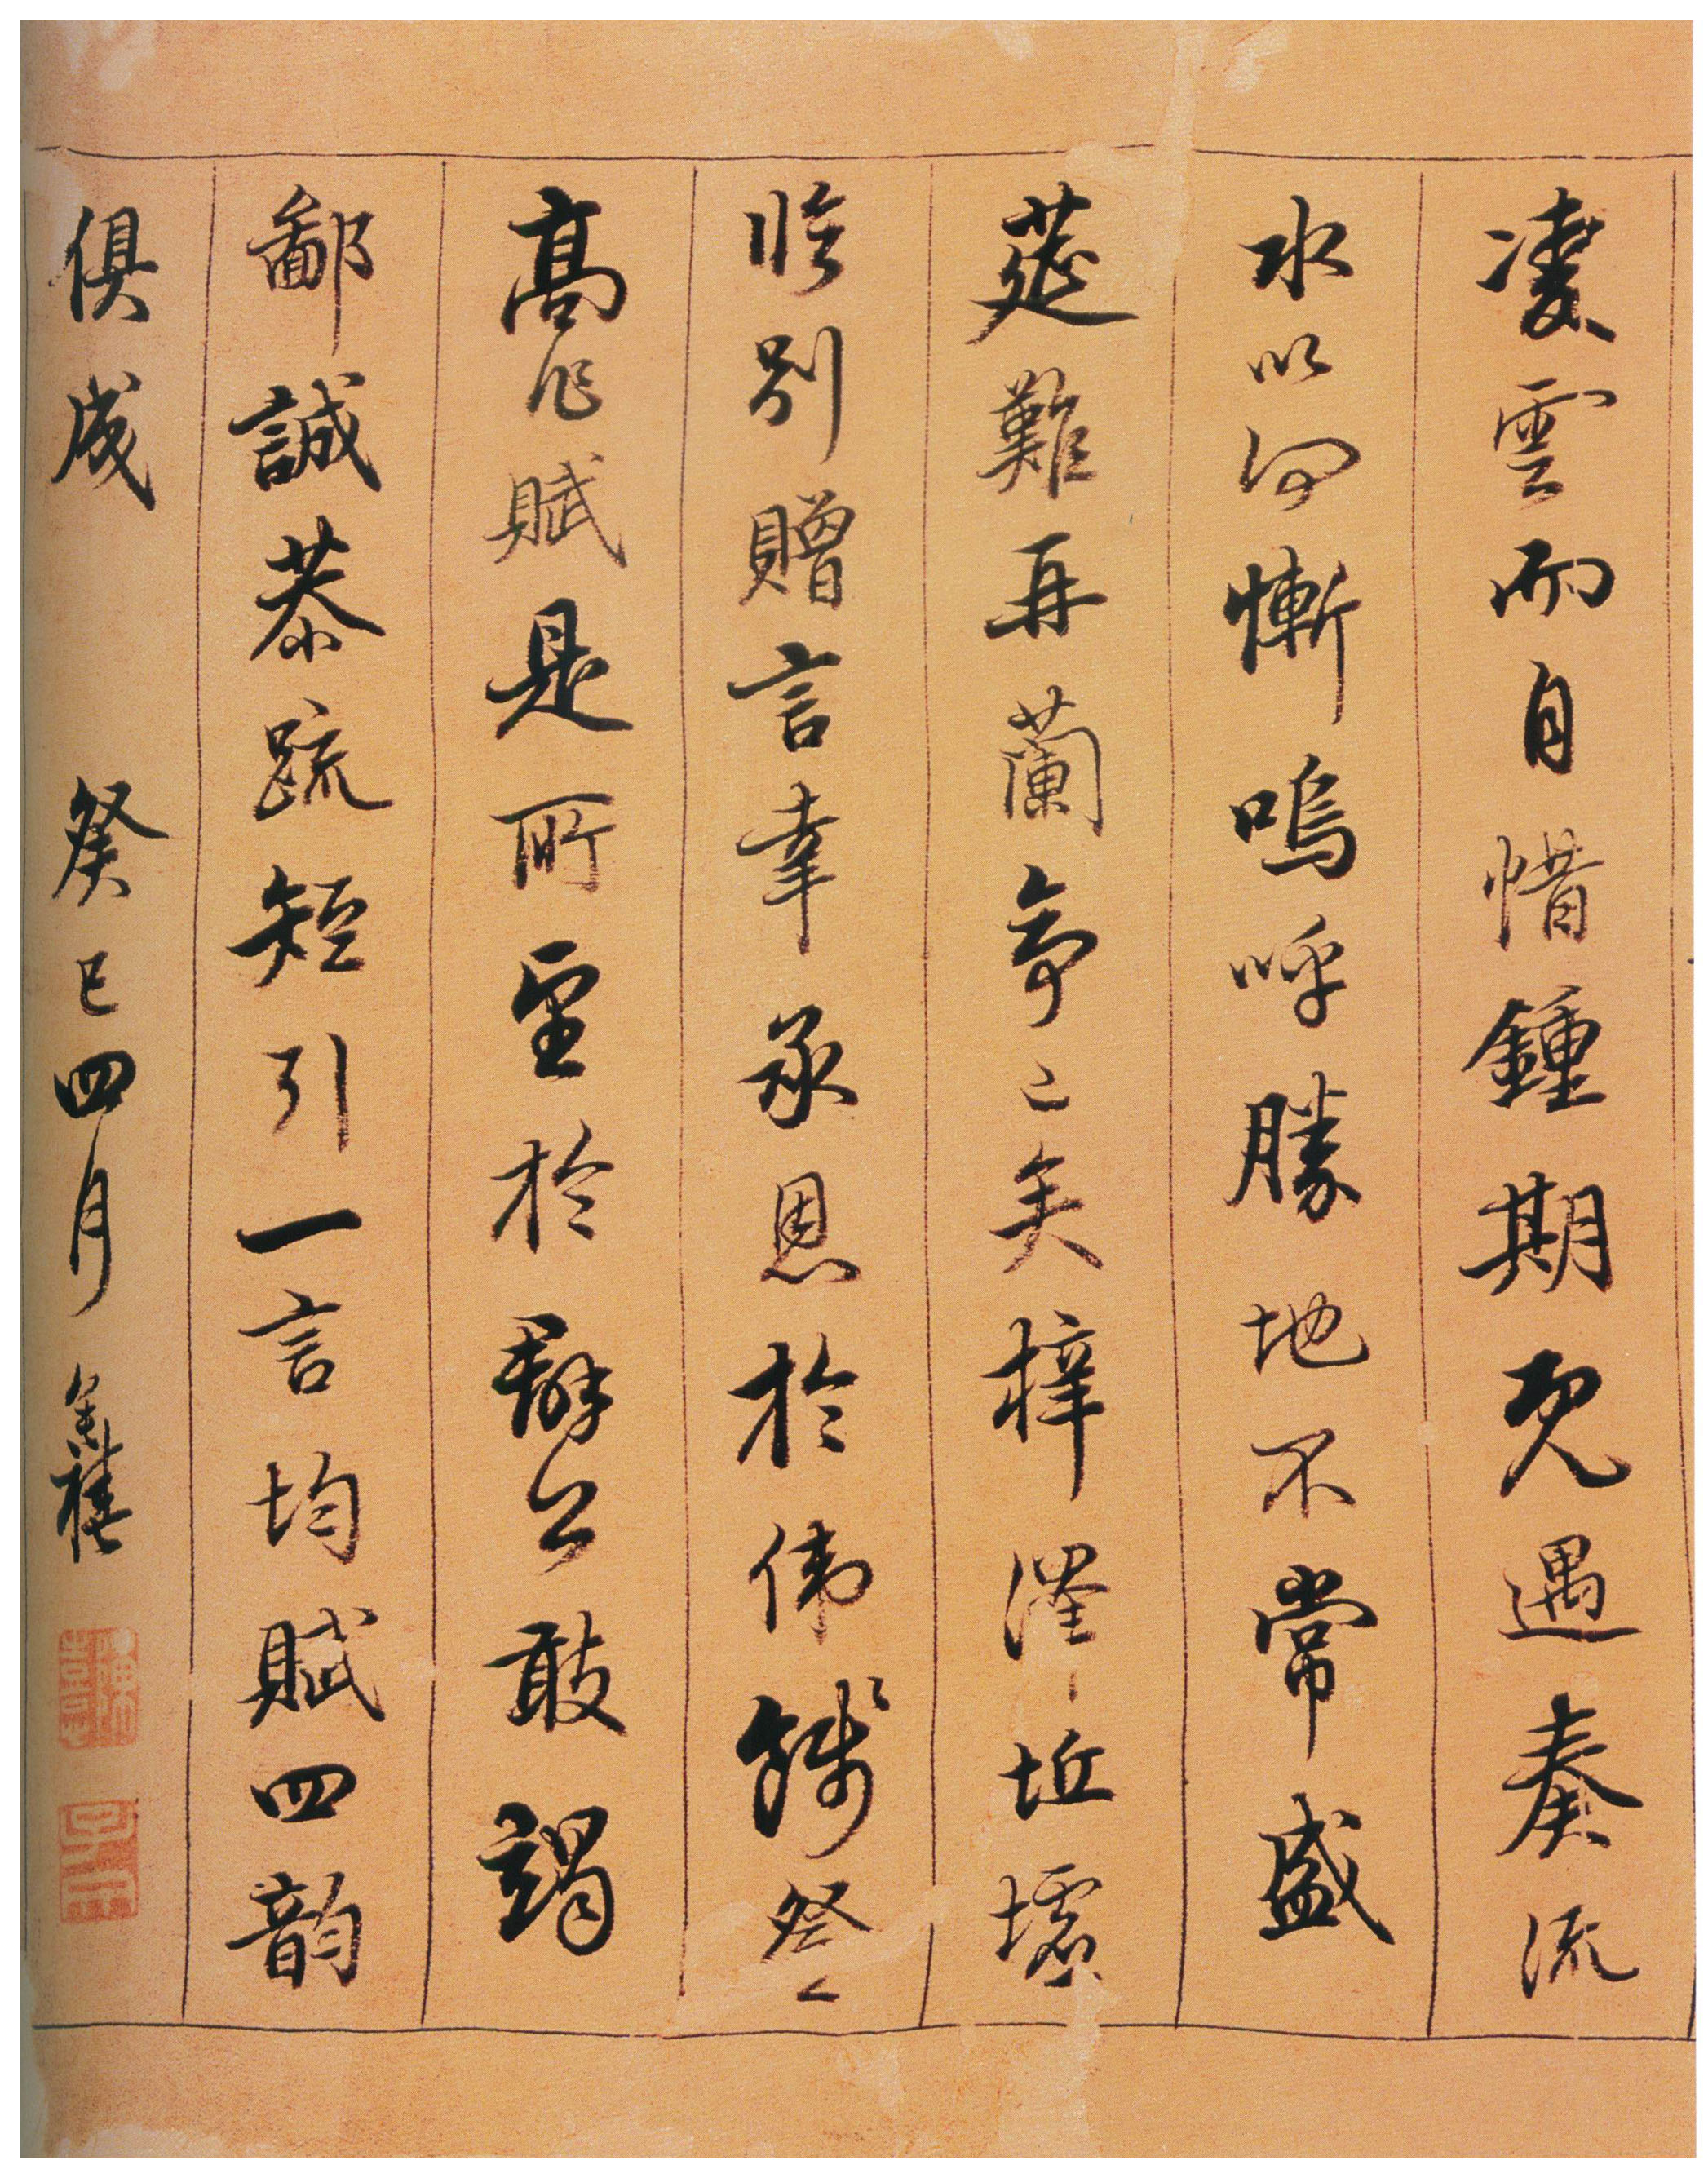 凌雲而自惜鍾期既遇奏流
水以何慚嗚呼勝地不常盛
莚難再蘭亭已矣梓澤丘墟
臨別贈言幸承恩於偉餞登
高作賦是所望於群公敢竭
鄙誠恭疏短引一言均賦四韵
俱成 癸巳四月